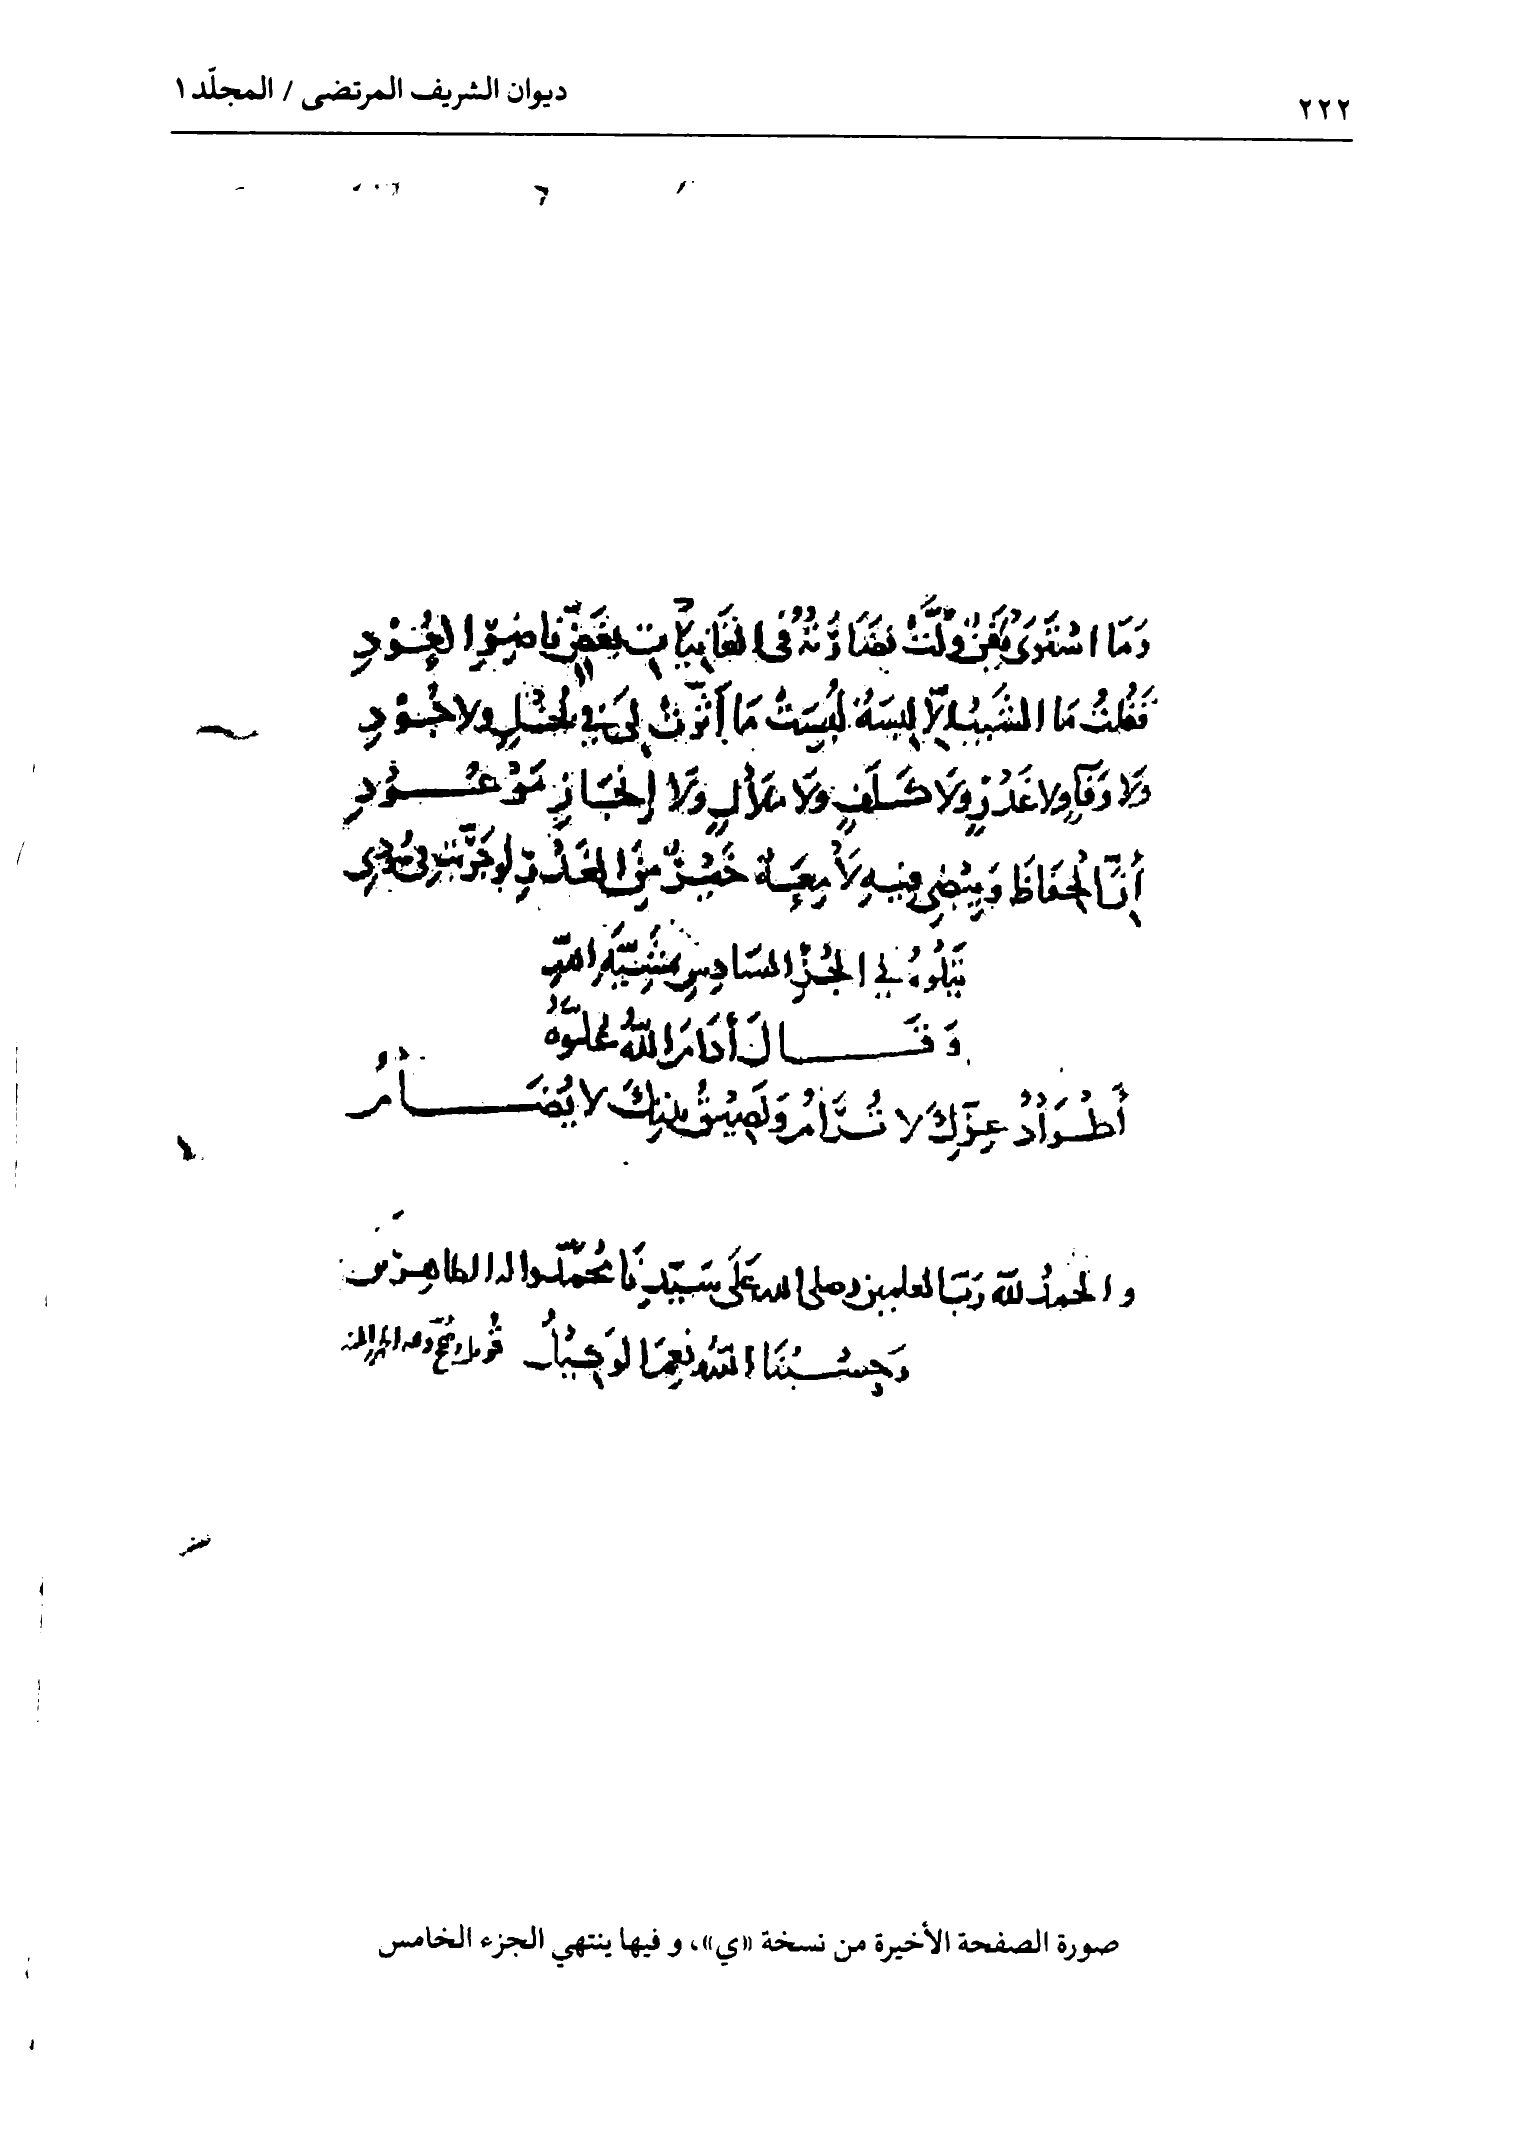 ٢٢٢
ديوان الشريف المرتضى / المجلّد ١
وَمَا اسْتَوَى يَفَنٌ وَلَّتْ نَضَارَتُهُ في الغَانِيَاتِ بِغَضٍّ نَاضِرِ العُوْدِ
فَقُلْتُ مَا الشَيْبُ إلَّا لِبسَةٌ لُبِسَتْ مَا أثَّرَتْ لِيَ في بُخْلٍ ولا جُوْدِ
وَلَا وَفَآءٍ ولا غَدْرٍ وَلَا كَلَفٍ ولَا مَلَالٍ وَلَا إنْجَازِ مَوْعُوْدِ
إنَّ الحِفَاظَ وَبِيْضِي فِيهِ لَامِعَةٌ خَيْرٌ مِنَ الغَدْرِ لو جَرَّبْتِ في سُودِي
يَتلُوهُ في الجُزْءِ السَادِسِ بمَشِيَّةِ اللهِ
وَقَالَ أدَامَ اللهُ عُلُوَّهُ
أطْوَادُ عِزِّكَ لا تُرَامُ وَلَصِيْقُ بَيْتِكَ لا يُضَامُ
والحَمدُ للهِ رَبِّ العلمين وصلى الله عَلَى سَيِّدِنَا مُحَمّدٍ واله الطاهِرين
وَحَسْبُنَا اللهُ ونِعمَ الوَكِيْلُ قُوبل وصُحِّح
صورة الصفحة الأخيرة من نسخة «ي»، و فيها ينتهي الجزء الخامس